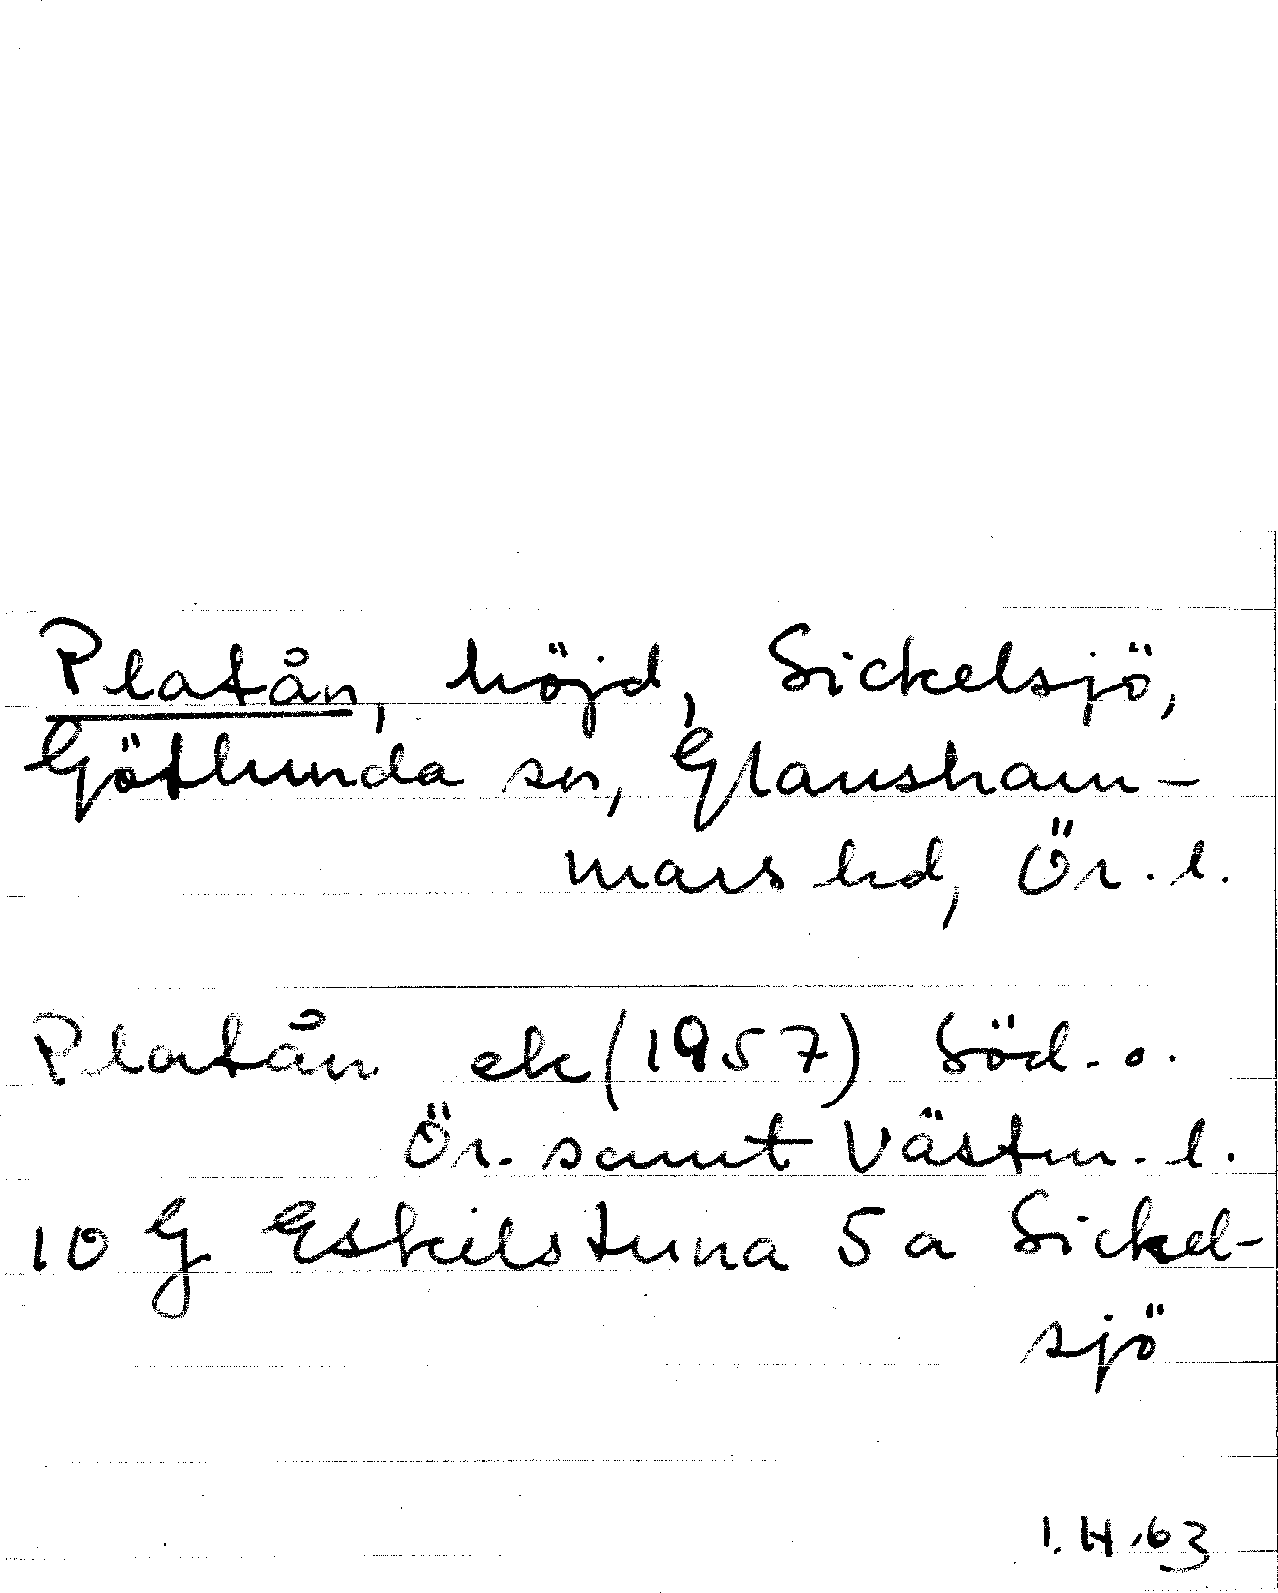 Platån, höjd, Sickelsjö,
Götlunda sn, Glansham-
mars hd, Ör. l.
Platån ek (1957) Söd. o.
Ör. samt Västm. l.
10 G Eskilstuna 5 a Sickel-
sjö
I.H.63